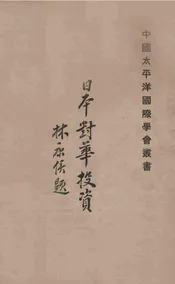 中國太平洋國際學會叢書
日本對華投資
林康侯題